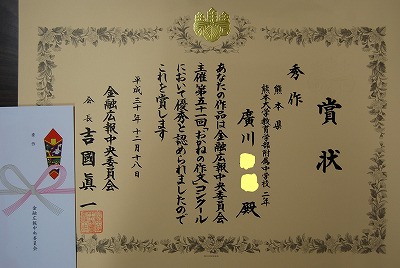 賞状
秀作
熊本県
熊本大学教育学部附属中学校 二年
廣川 殿
あなたの作品は金融広報中央委員会
主催第五十一回「おかねの作文」コンクール
において優秀と認められましたので
これを賞します
平成三十年十二月十八日
金融広報中央委員会
会長 吉國眞一
秀作
金融広報中央委員会